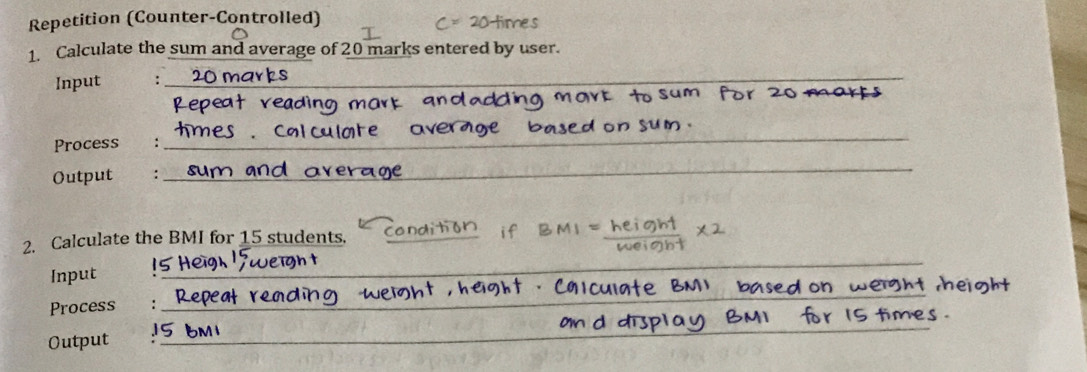 Repetition (Counter-Controlled) C = 20 times
O I
1. Calculate the sum and average of 20 marks entered by user.
Input : 20 marks
Repeat reading mark and adding mark to sum for 20 marks
times. Calculate average based on sum.
Process :
Output : sum and average
2. Calculate the BMI for 15 students. condition if BMI = height/weight x2
Input : 15 Heigh 15 weight
Process : Repeat reading weight, height. Calculate BMI based on weight, height
and display BMI for 15 times.
Output : 15 BMI